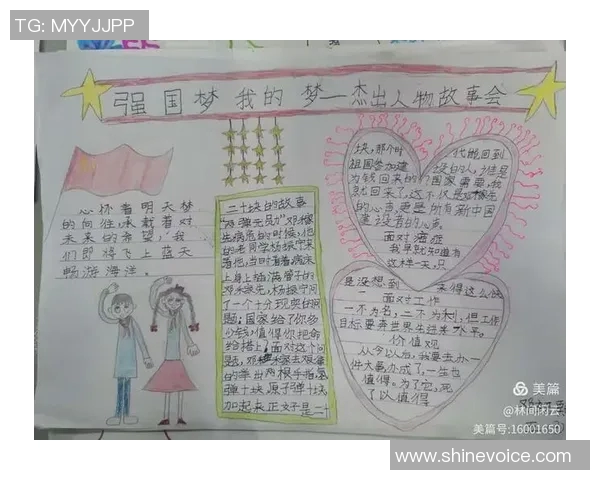 TG: MYYJJPP
强国梦 我的 梦—杰出人物故事会
心怀着明天梦
的向往，承载着对
未来的希望，我
们即将飞上蓝天
畅游海洋。
二十块的故事
生病危的时候，他
的老同学杨振宁来
看他，当时看着病床
上身上插满管子的
邓稼先，杨振宁问
了一个十分现实的问
题：国家给了你多
少钱，值得你把命
给搭上，面对这个问
弹十块，原子弹十块
加起来正好是二十
块，那个时 代能回到
祖国参加建 设的人，谁是
为钱回来的？国家需要，我
就回来了，这不仅是邓稼先
的心声更是所有新中国
建设者的心声
面对癌症
我早就知道有
这样一天，只
是没想到 来得这么快
面对工作
一不为名，二不为利，但工作
目标要奔世界先进水平。
价值观
从今以后，我要去办一
件大事，办成了，一生也
值得。为了它，死
了以值得
美篇
@林间闲云
美篇号:16001650
www.shinevoice.com